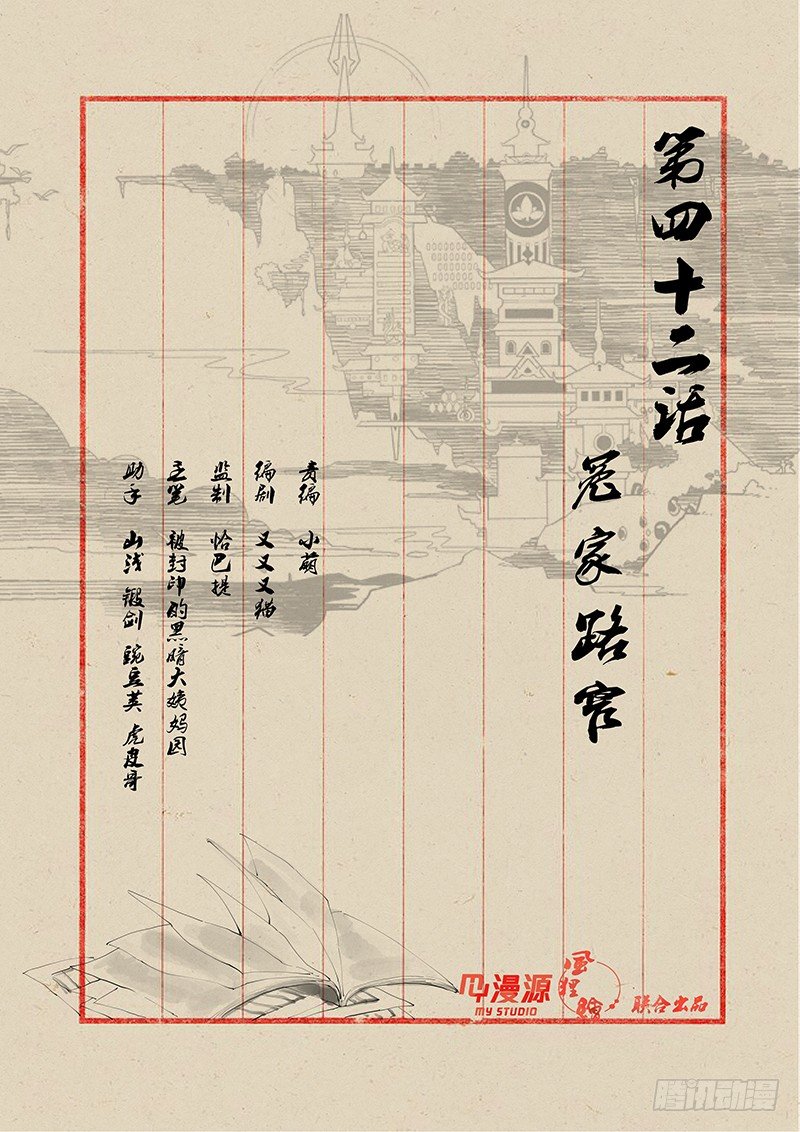 第四十二话
冤家路窄
责编 小萌
编剧 又又又猫
监制 恰巴提
主笔 被封印的黑暗大姨妈园
助手 山浅 锻剑 豌豆荚 虎皮哥
漫源
MY STUDIO
風狸
联合出品
腾讯动漫